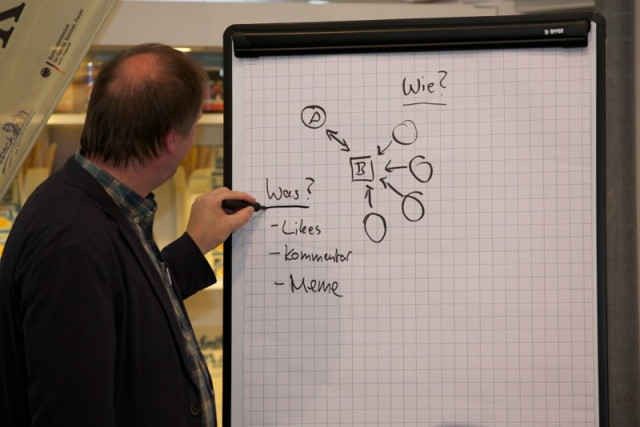 Wie?
A
B
Was?
- Likes
- Kommentar
- Meme